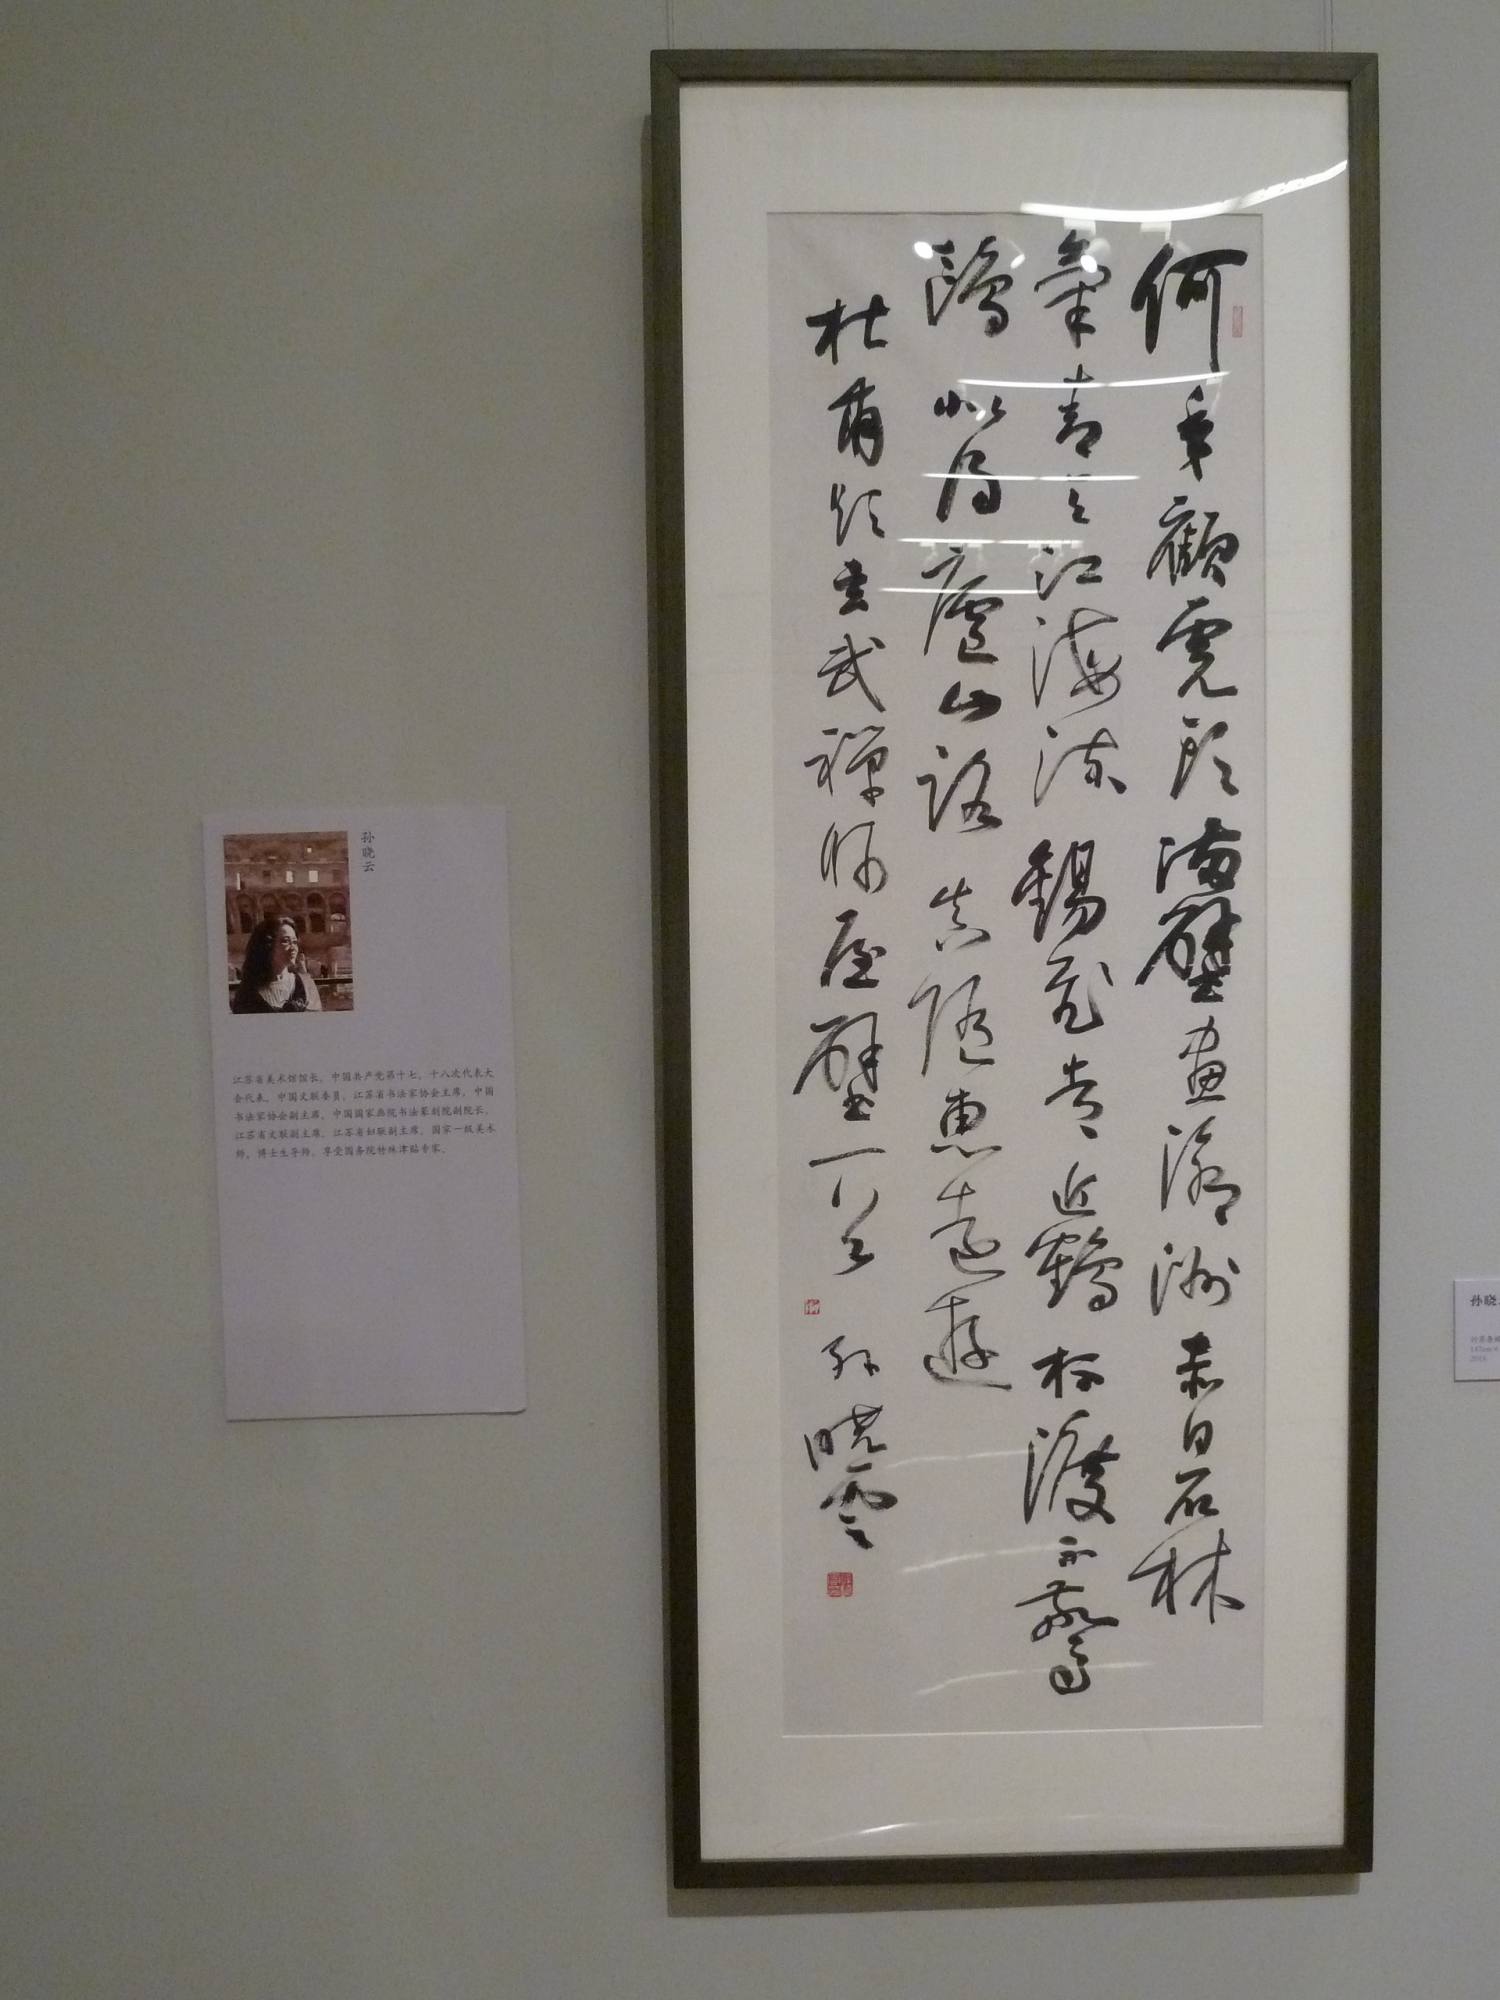 孙晓云
江苏省美术馆馆长，中国共产党第十七、十八次代表大
会代表，中国文联委员，江苏省书法家协会主席，中国
书法家协会副主席，中国国家画院书法篆刻院副院长，
江苏省文联副主席，江苏省妇联副主席，国家一级美术
师，博士生导师，享受国务院特殊津贴专家。
何年顧虎頭滿壁畫瀛洲赤日石林
氣青天江海流錫飛常近鶴杯渡不驚
鷗似得廬山路真隨惠遠遊
杜甫題玄武禪師屋壁一首 孫曉雲
孙晓